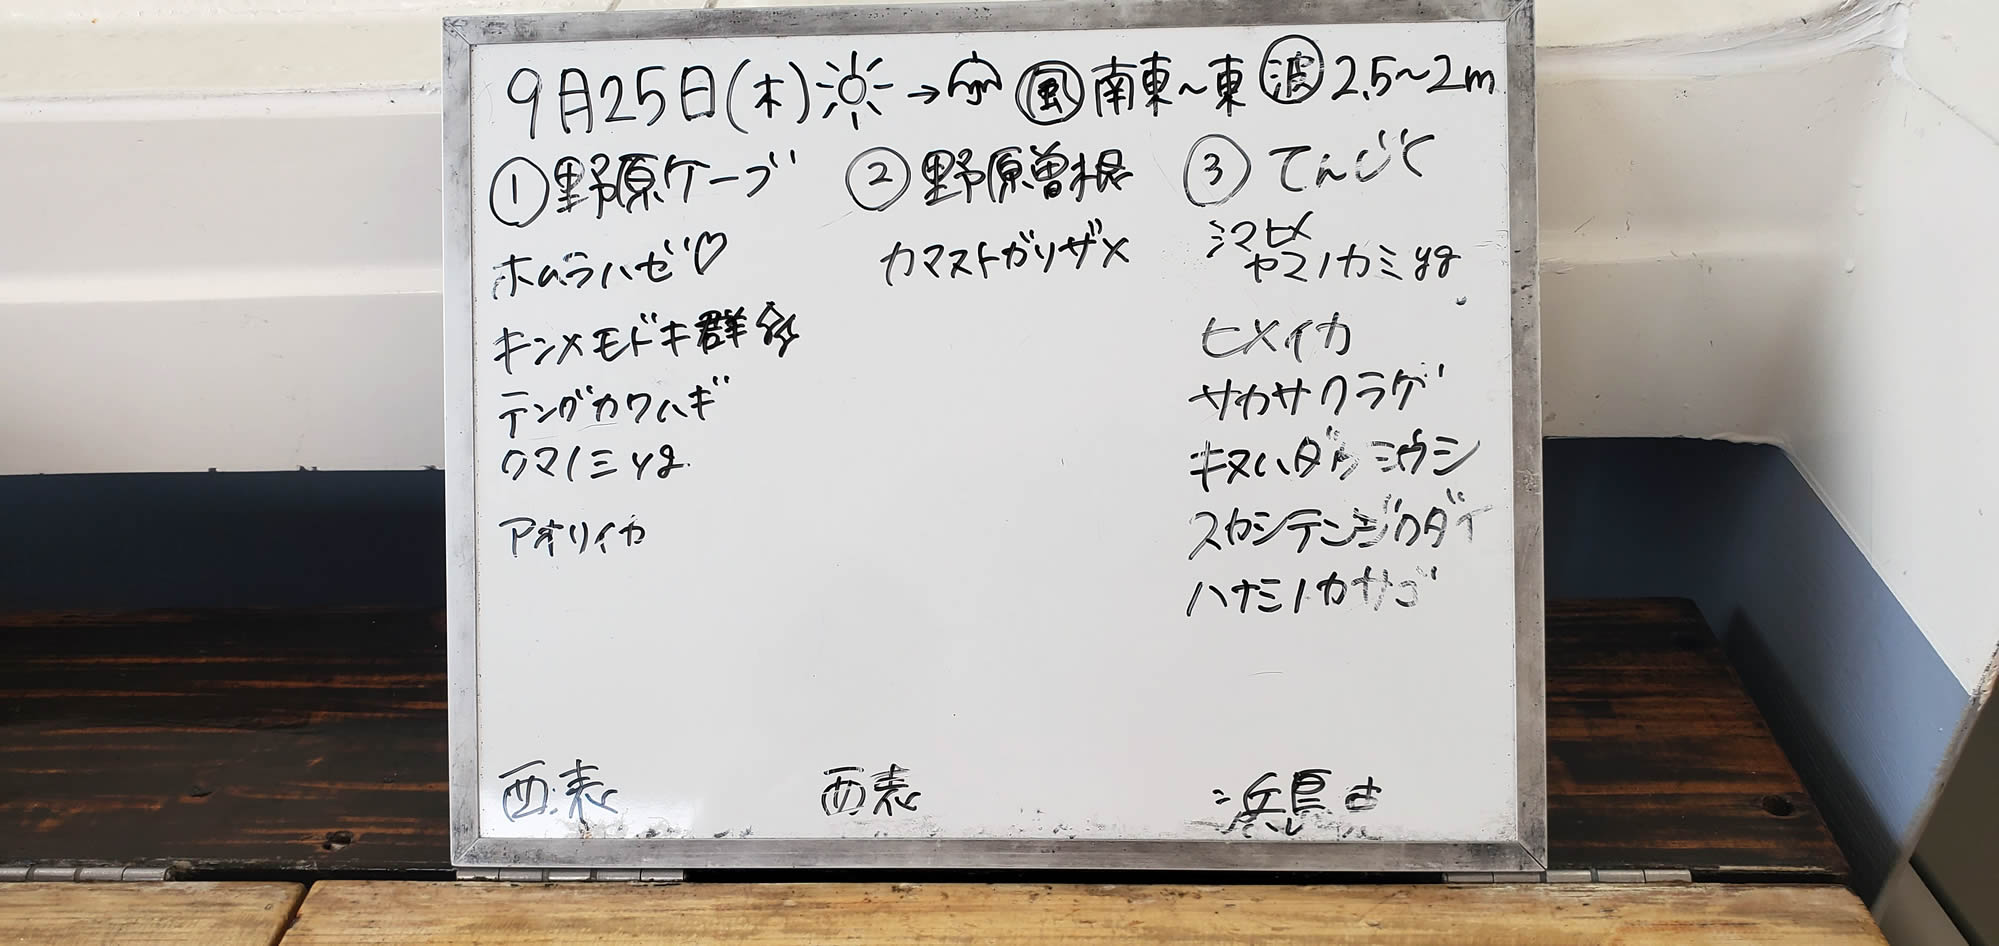 9月25日(木) → 風 南東～東 波 2.5～2m
①野原ケーブ
ホムラハゼ♡
キンメモドキ群☆
テングカワハギ
クマノミyg
アオリイカ
西表
②野原曽根
カマストガリザメ
西表
③てんじく
シマヒメ
ヤマノカミyg
ヒメイカ
サカサクラゲ
キヌハダウミウシ
スカシテンジクダイ
ハナミノカサゴ
浜島